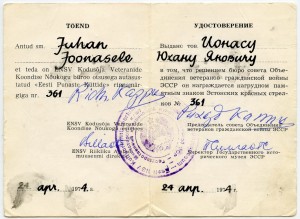 TÕEND
Antud sm. Juhan
Joonasele
et teda on ENSV Kodusõja Veteranide
Koondise Nõukogu büroo otsusega autasus-
tatud «Eesti Punaste Küttide» rinnamär-
giga nr. 361
ENSV Kodusõja Veteranide
Koondise Nõukogu esimees
ENSV Riikliku
muuseumi direktor
24 apr. 1974.a.
УДОСТОВЕРЕНИЕ
Выдано тов. Йонасу
Юхану Яновичу
в том, что решением бюро совета Объеди-
нения ветеранов гражданской войны
ЭССР он награждается нагрудным па-
мятным знаком Эстонских красных стрел-
ков № 361
Председатель совета Объединения
ветеранов гражданской войны ЭССР
Директор Государственного истори-
ческого музея ЭССР
24 апр. 1974 г.